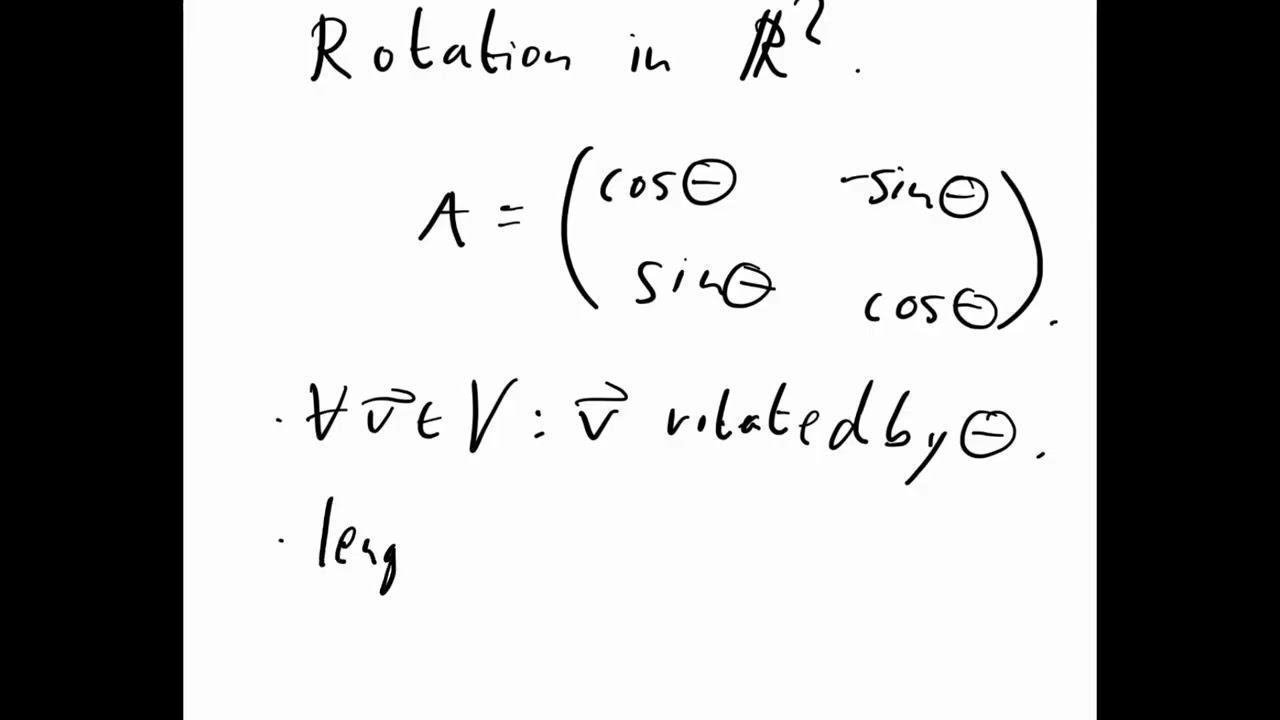 Rotation in ℝ².
A = (cosθ -sinθ
sinθ cosθ).
· ∀v⃗ ∈ V : v⃗ rotated by θ.
· leng